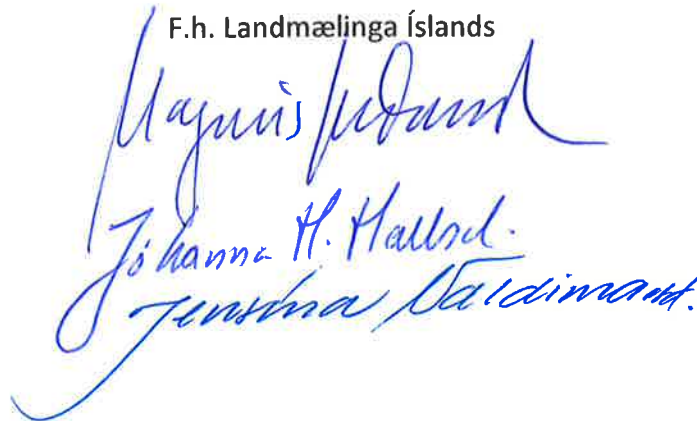 F.h. Landmælinga Íslands
Magnús Guðmund
Jóhanna H. Hallsd.
Jensína Valdimarsd.